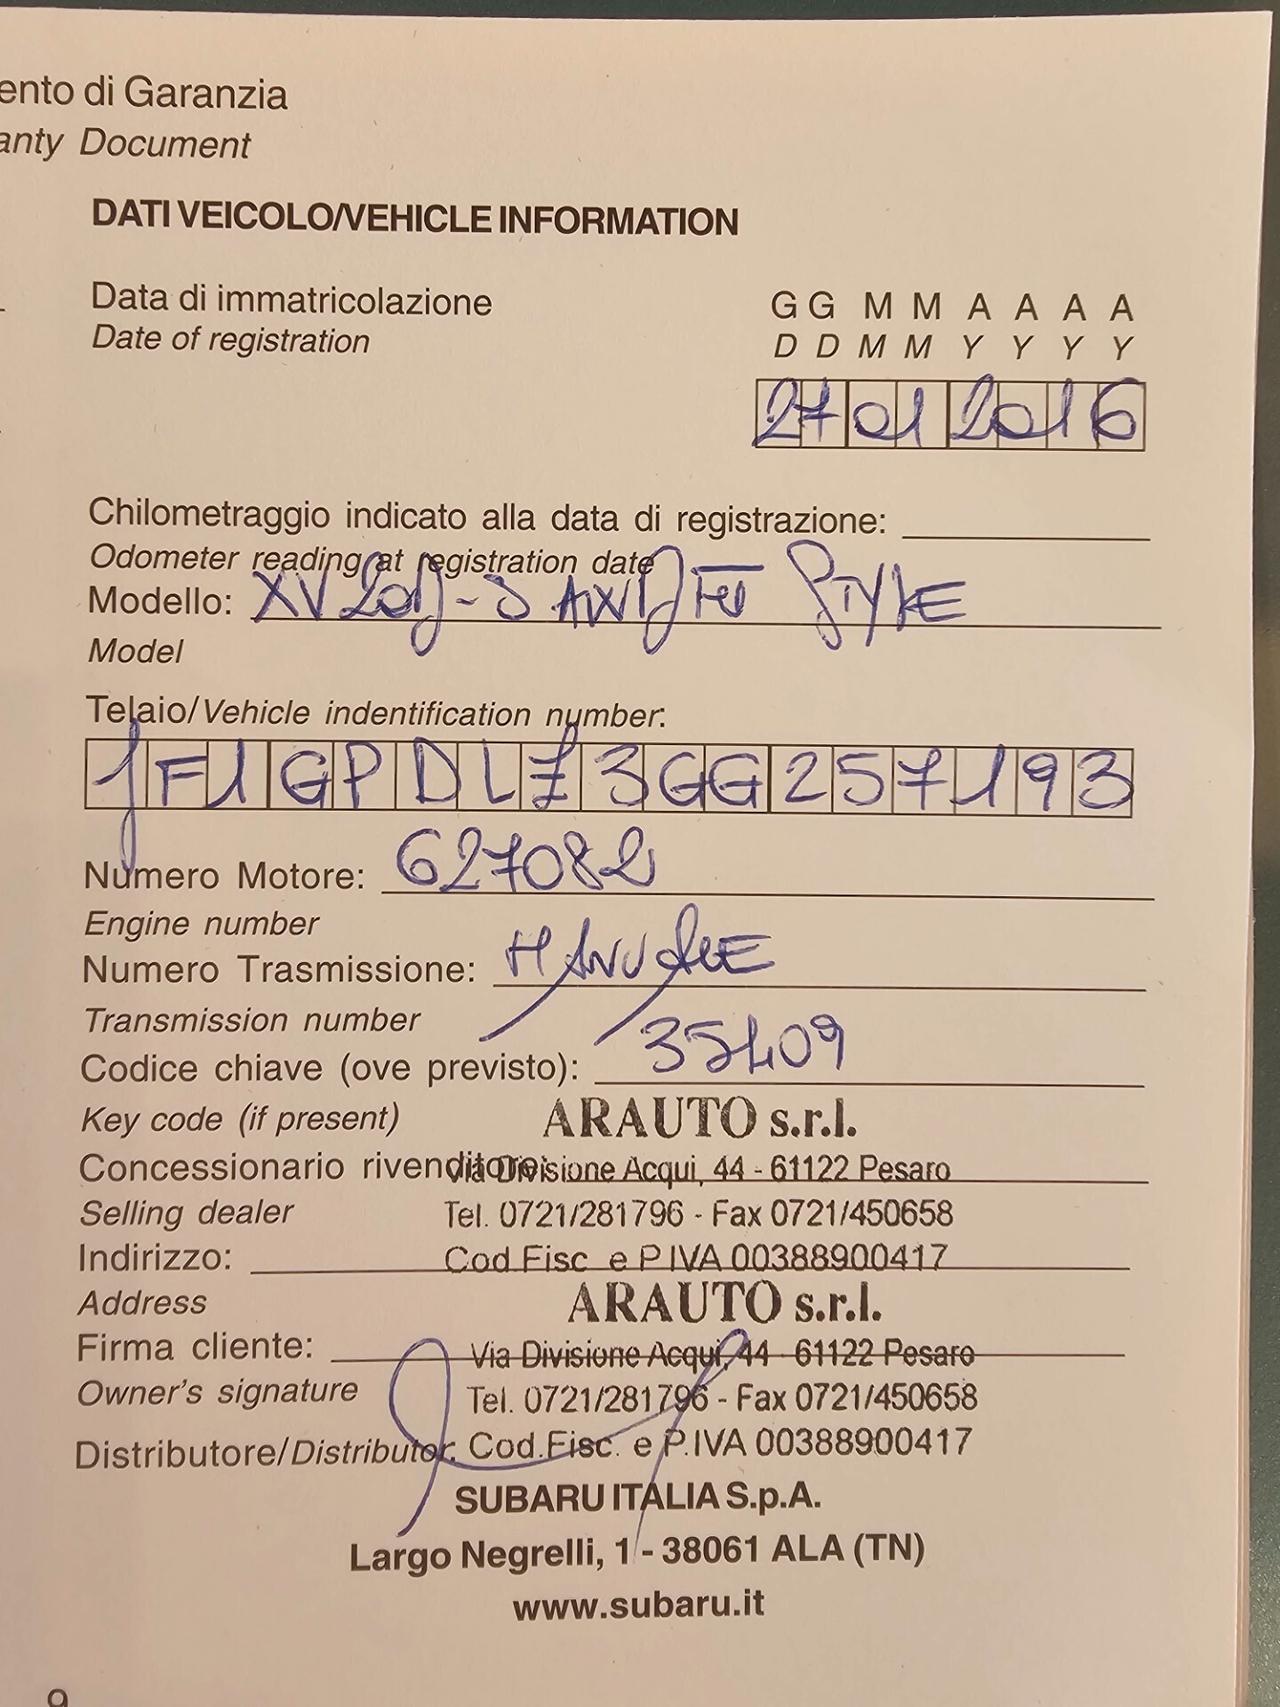 ento di Garanzia
anty Document
DATI VEICOLO/VEHICLE INFORMATION
Data di immatricolazione G G M M A A A A
Date of registration D D M M Y Y Y Y
27 01 2016
Chilometraggio indicato alla data di registrazione:
Odometer reading at registration date
Modello: XV 20D-S AWD STYLE
Model
Telaio/Vehicle indentification number:
JF1GPDLZ3GG257193
Numero Motore: 627082
Engine number
Numero Trasmissione: MANUALE
Transmission number
Codice chiave (ove previsto): 35409
Key code (if present) ARAUTO s.r.l.
Concessionario rivenditore: Via Divisione Acqui, 44 - 61122 Pesaro
Selling dealer Tel. 0721/281796 - Fax 0721/450658
Indirizzo: Cod.Fisc. e P.IVA 00388900417
Address ARAUTO s.r.l.
Firma cliente: Via Divisione Acqui, 44 - 61122 Pesaro
Owner's signature Tel. 0721/281796 - Fax 0721/450658
Distributore/Distributor. Cod.Fisc. e P.IVA 00388900417
SUBARU ITALIA S.p.A.
Largo Negrelli, 1 - 38061 ALA (TN)
www.subaru.it
9